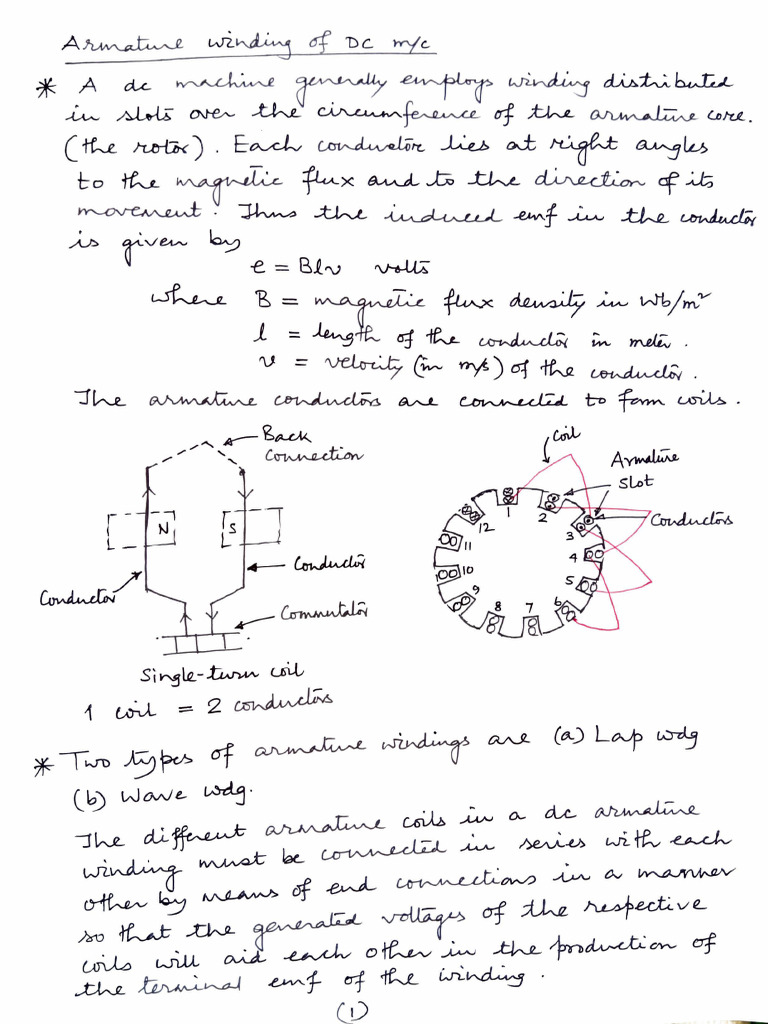 Armature winding of DC m/c
* A dc machine generally employs winding distributed
in slots over the circumference of the armature core.
(the rotor). Each conductor lies at right angles
to the magnetic flux and to the direction of its
movement. Thus the induced emf in the conductor
is given by
e = Blv volts
where B = magnetic flux density in Wb/m²
l = length of the conductor in meter.
v = velocity (in m/s) of the conductor.
The armature conductors are connected to form coils.
Back
connection
N
S
Conductor
Conductor
Commutator
Single-turn coil
Coil
Armature
slot
Conductors
1
2
3
4
5
6
7
8
9
10
11
12
1 coil = 2 conductors
* Two types of armature windings are (a) Lap wdg
(b) Wave wdg.
The different armature coils in a dc armature
winding must be connected in series with each
other by means of end connections in a manner
so that the generated voltages of the respective
coils will aid each other in the production of
the terminal emf of the winding.
(1)